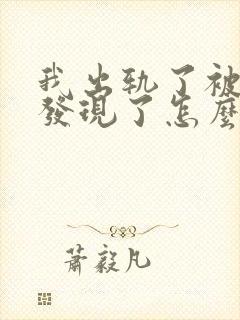 我出轨了被
發現了怎麼
蕭毅凡